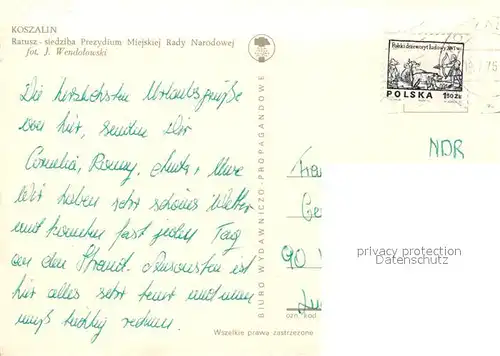 KOSZALIN
Ratusz - siedziba Prezydium Miejskiej Rady Narodowej
fot. J. Wendołowski
Polski drzeworyt ludowy XVI w.
POLSKA 1.50 ZŁ
75
NDR
Die herzlichsten Urlaubsgrüße
von hier, senden Dir
Cornelia, Ronny, Anita, Uwe
Wir haben sehr schönes Wetter
und konnten fast jeden Tag
an den Strand. Ansonsten ist
hier alles sehr teuer und man
muß tüchtig rechnen.
BIURO WYDAWNICZO-PROPAGANDOWE
Ge
90
ozn kod
Wszelkie prawa zastrzeżone
privacy protection
privacy protection